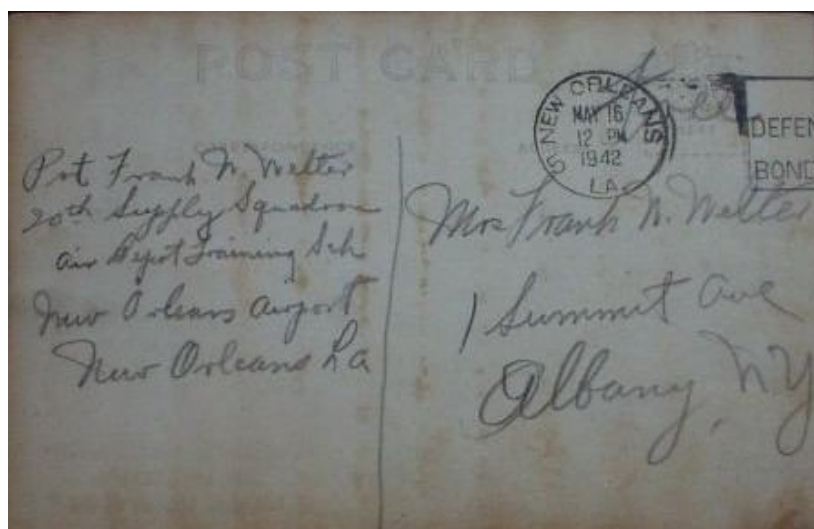 POST CARD
CORRESPONDENCE
Free
5 NEW ORLEANS
MAY 16
12 PM
1942
LA.
DEFEN
BOND
Pvt Frank N. Welter
20th Supply Squadron
Air Depot Training Sch
New Orleans Airport
New Orleans La
Mrs Frank N. Welter
1 Summit Ave
Albany, NY